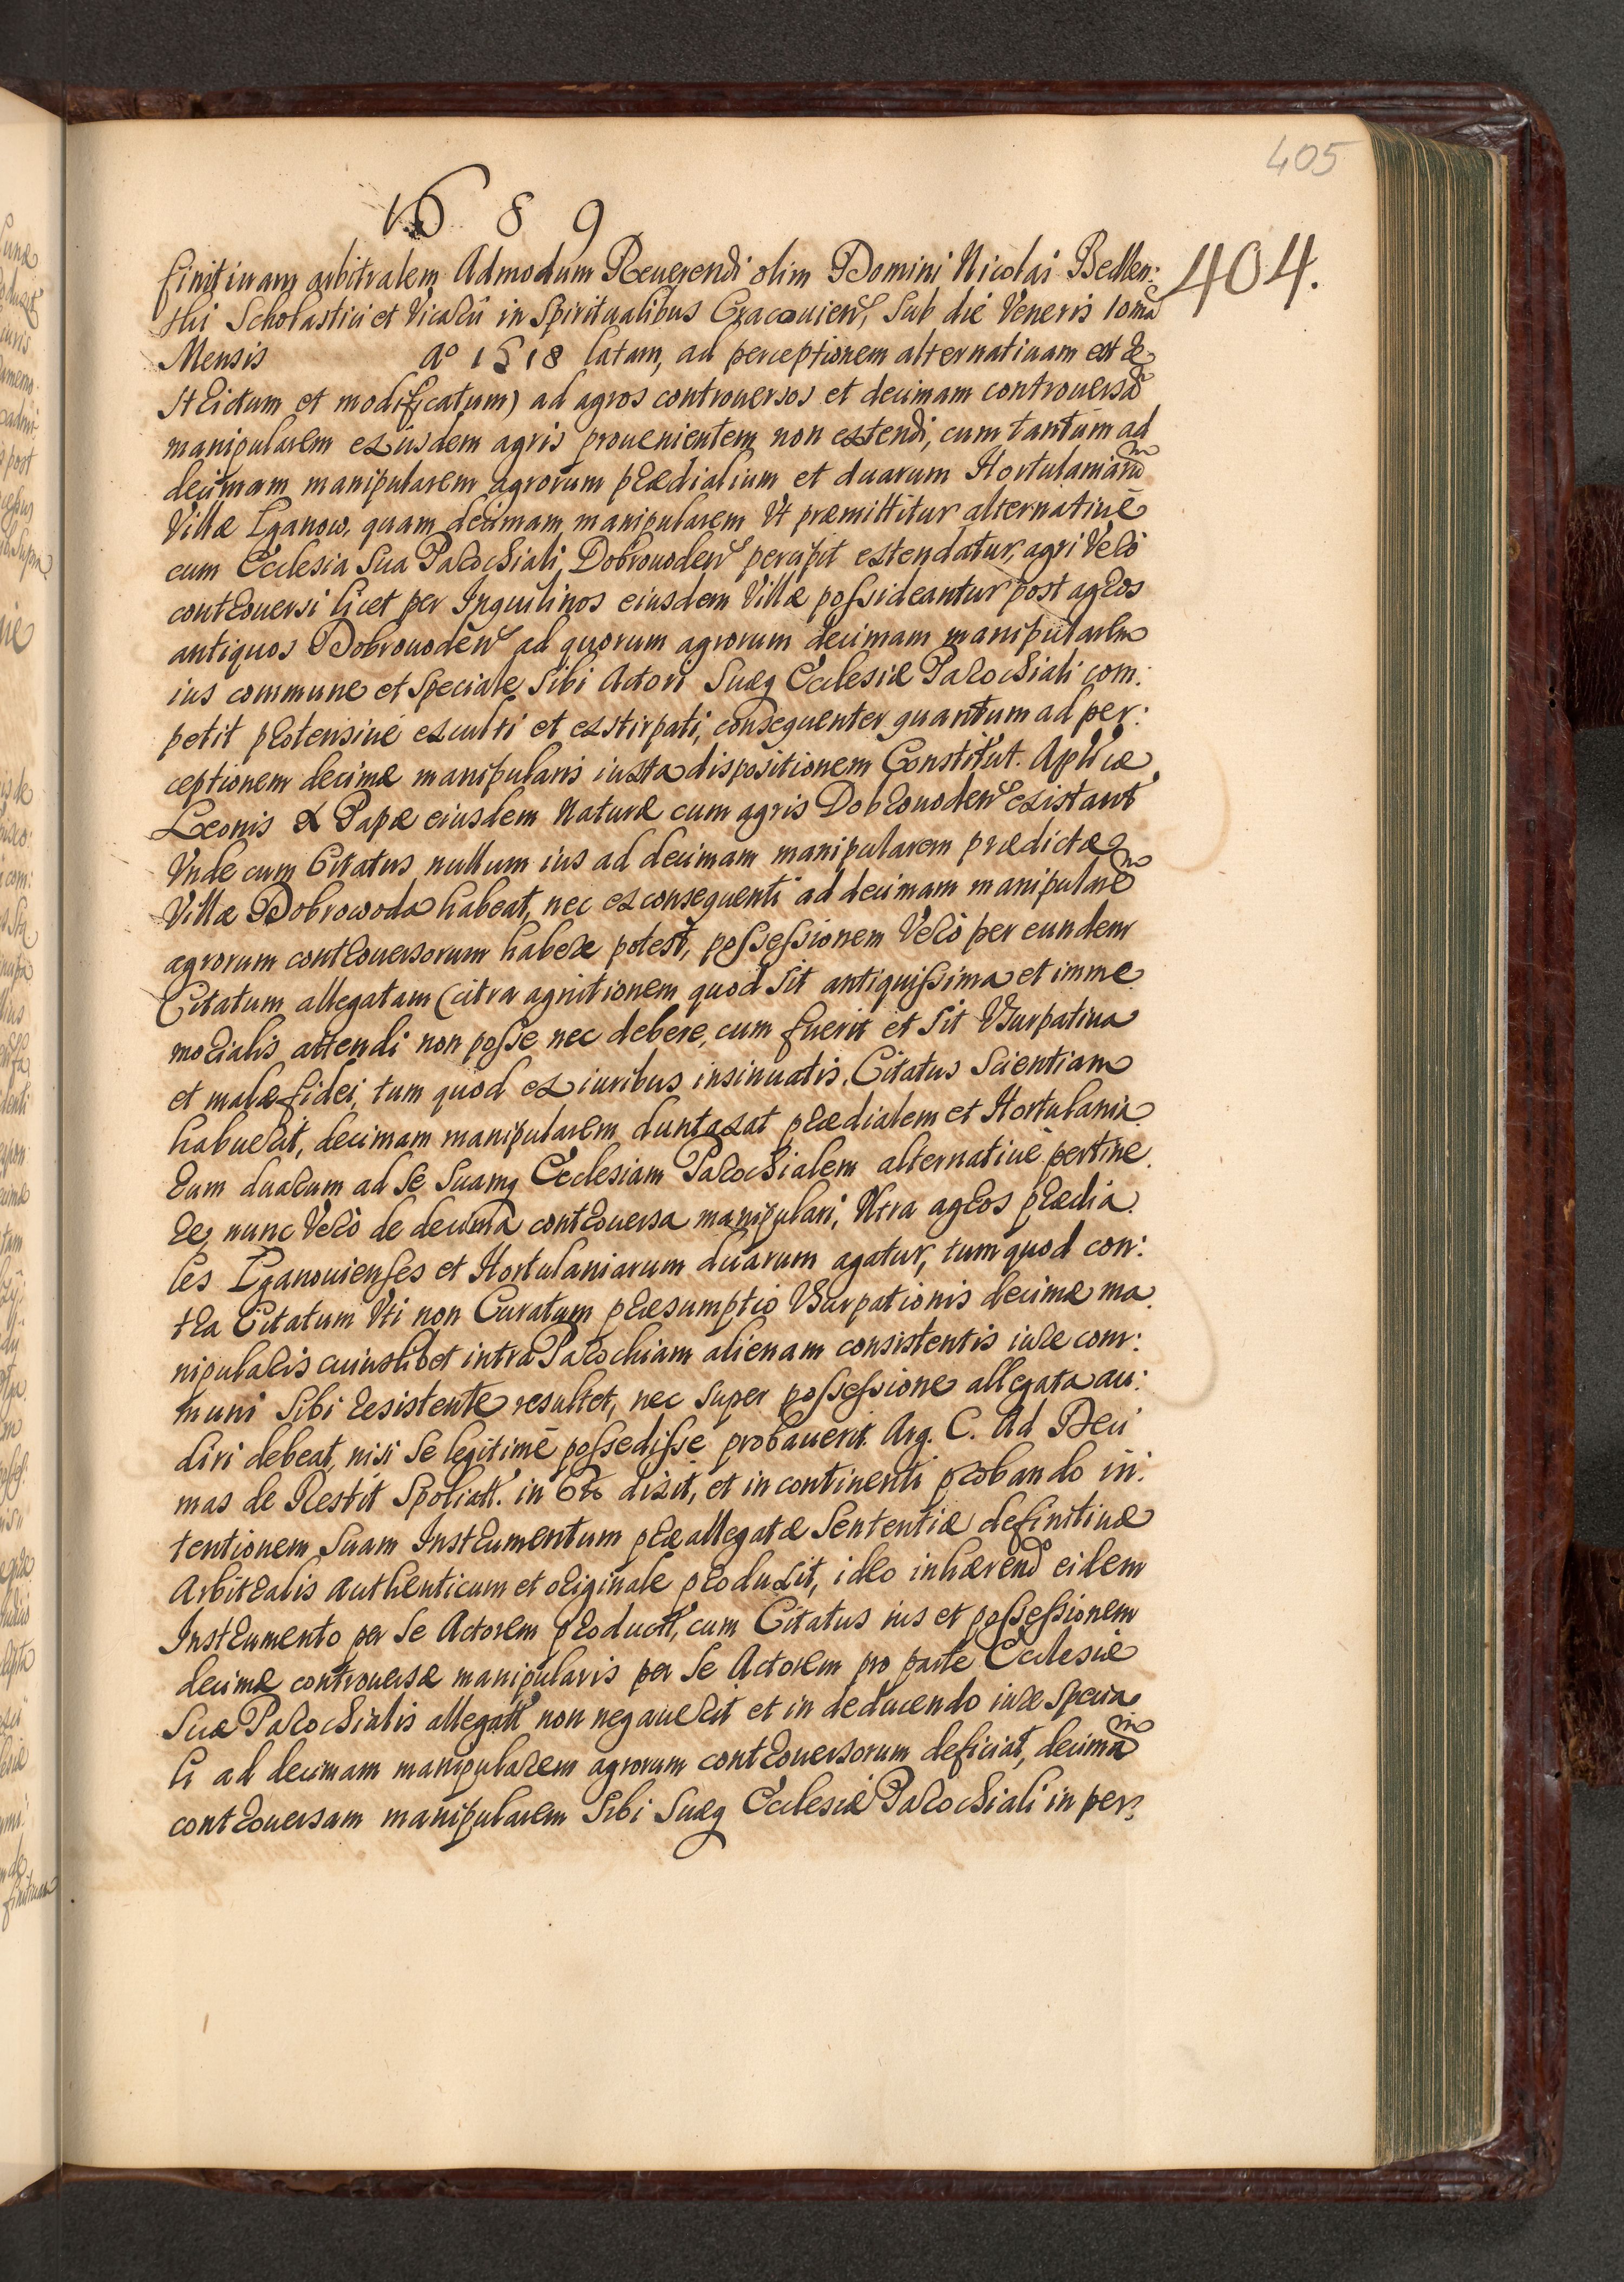 405
1689
404.
finitiuam arbitralem Admodum Reuerendi olim Domini Nicolai Bedlen:
shi Scholastici et Vicarii in Spiritualibus Cracouien, Sub die Veneris 10ma
Mensis A° 1518 latam, ad perceptionem alternatiuam est re
strictum et modificatum) ad agros controuersos et decimam controuersã
manipularem ex iisdem agris prouenientem non extendi, cum tantum ad
decimam manipularem agrorum prædialium et duarum Hortulaniarũ
Villæ Lganow, quam decimam manipularem Vt præmittitur alternatiuè
cum Ecclesia Sua Parochiali Dobrouoden percipit extendatur, agri Verò
controuersi licet per Inquilinos eiusdem Villæ possideantur post agros
antiquos Dobrouoden ad quorum agrorum decimam manipularem
ius commune et Speciale Sibi Actori Suæq Ecclesiæ Parochiali com:
petit protensiuè exculti et exstirpati, consequenter quantum ad per:
ceptionem decimæ manipularis iuxta dispositionem Constitut. Aplicæ
Leonis X Papæ eiusdem Naturæ cum agris Dobrouoden existant
Vnde cum Citatus nullum ius ad decimam manipularem prædictæ
Villæ Dobrowoda habeat, nec ex consequenti ad decimam manipularẽ
agrorum controuersorum habere potest, possessionem Verò per eundem
Citatum allegatam (citra agnitionem quod Sit antiquissima et imme
morialis attendi non posse nec debere, cum fuerit et Sit Vsurpatiua
et malæ fidei, tum quod ex iuribus insinuatis Citatus Scientiam
habuerit, decimam manipularem duntaxat prædialem et Hortulania
rum duarum ad Se Suamq Ecclesiam Parochialem alternatiuè pertine
re, nunc Verò de decima controuersa manipulari, Vltra agros prædia
les Lganouienses et Hortulaniarum duarum agatur, tum quod con:
tra Citatum Vti non Curatum præsumptio Vsurpationis decimæ ma
nipularis cuiuslibet intra Parochiam alienam consistentis iure com:
muni Sibi resistente resultet, nec Super possessione allegata au:
diri debeat, nisi Se legitimè possedisse probauerit. Arg. C. Ad Deci
mas de Restit Spoliatt. in 6to dixit, et in continenti probando in:
tentionem Suam Instrumentum præallegatæ Sententiæ definitiuæ
Arbitralis Authenticum et originale produxit, ideo inhærendo eidem
Instrumento per Se Actorem product, cum Citatus ius et possessionem
decimæ controuersæ manipularis per Se Actorem pro parte Ecclesiæ
Suæ Parochialis allegatt non negauerit et in deducendo iure Specia
li ad decimam manipularem agrorum controuersorum deficiat, decimã
controuersam manipularem Sibi Suæq Ecclesiæ Parochiali in per: